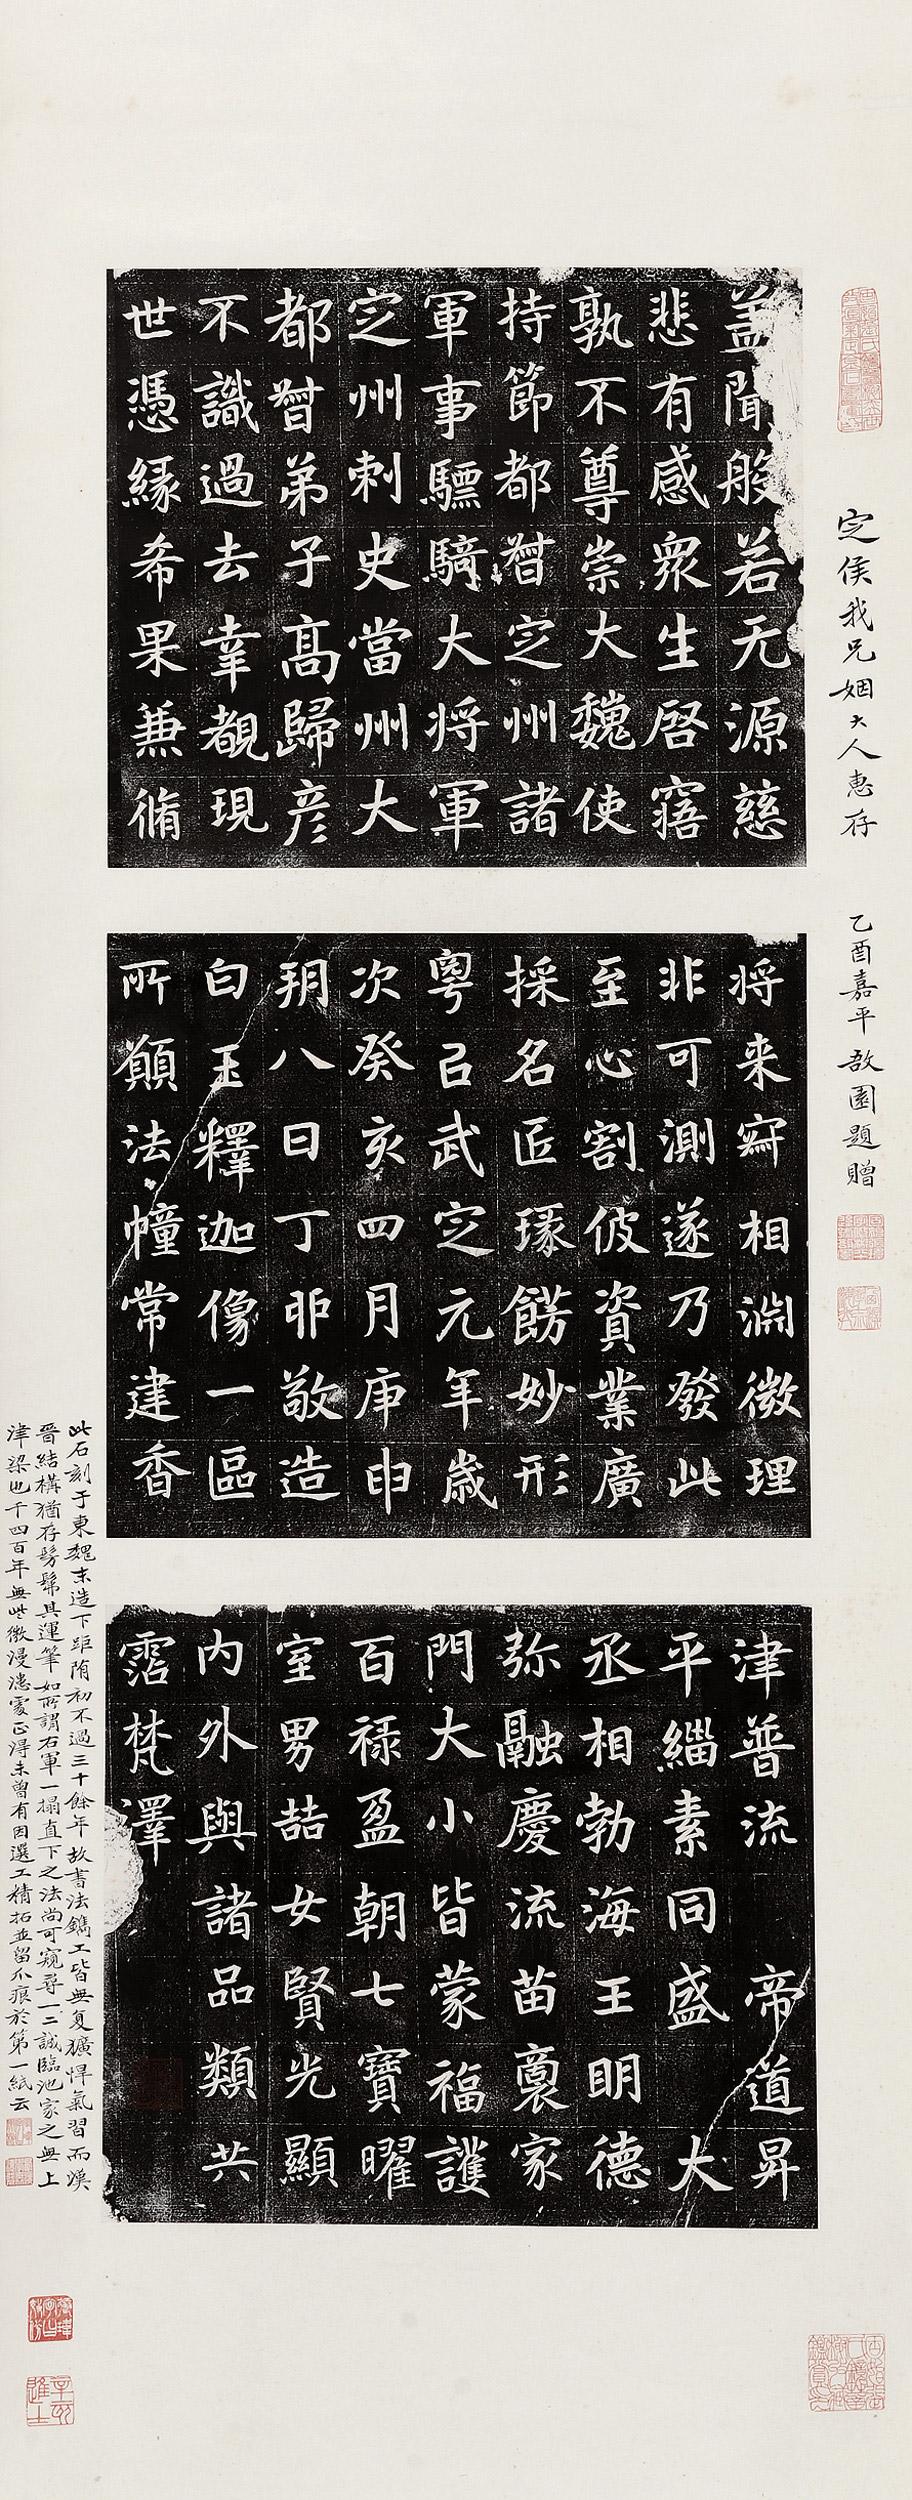 定侯我兄姻大人惠存
乙酉嘉平敔園題贈
盖聞般若无源慈
悲有感衆生啓寤
孰不尊崇大魏使
持節都督定州諸
軍事驃騎大將軍
定州刺史當州大
都督弟子高歸彦
不識過去幸覩現
世憑緣希果兼脩
將来寂相淵微理
非可測遂乃發此
至心割彼資業廣
採名匠琢餝妙形
粤己武定元年歲
次癸亥四月庚申
朔八日丁卯敬造
白玉釋迦像一區
所願法幢常建香
津普流 帝道昇
平緇素同盛 大
丞相勃海王明德
弥融慶流苗裔家
門大小皆蒙福護
百禄盈朝七寶曜
室男喆女賢光顯
内外與諸品類共
霑梵澤
此石刻于東魏末造下距隋初不過三十餘年故書法鐫工皆無复獷悍氣習而漢
晉結構猶存髣髴其運筆如所謂右軍一搨直下之法尚可窺尋一二誠臨池家之無上
津梁也千四百年無些微漫漶處正得未曾有因選工精拓並留爪痕於第一紙云
辛亥
進士